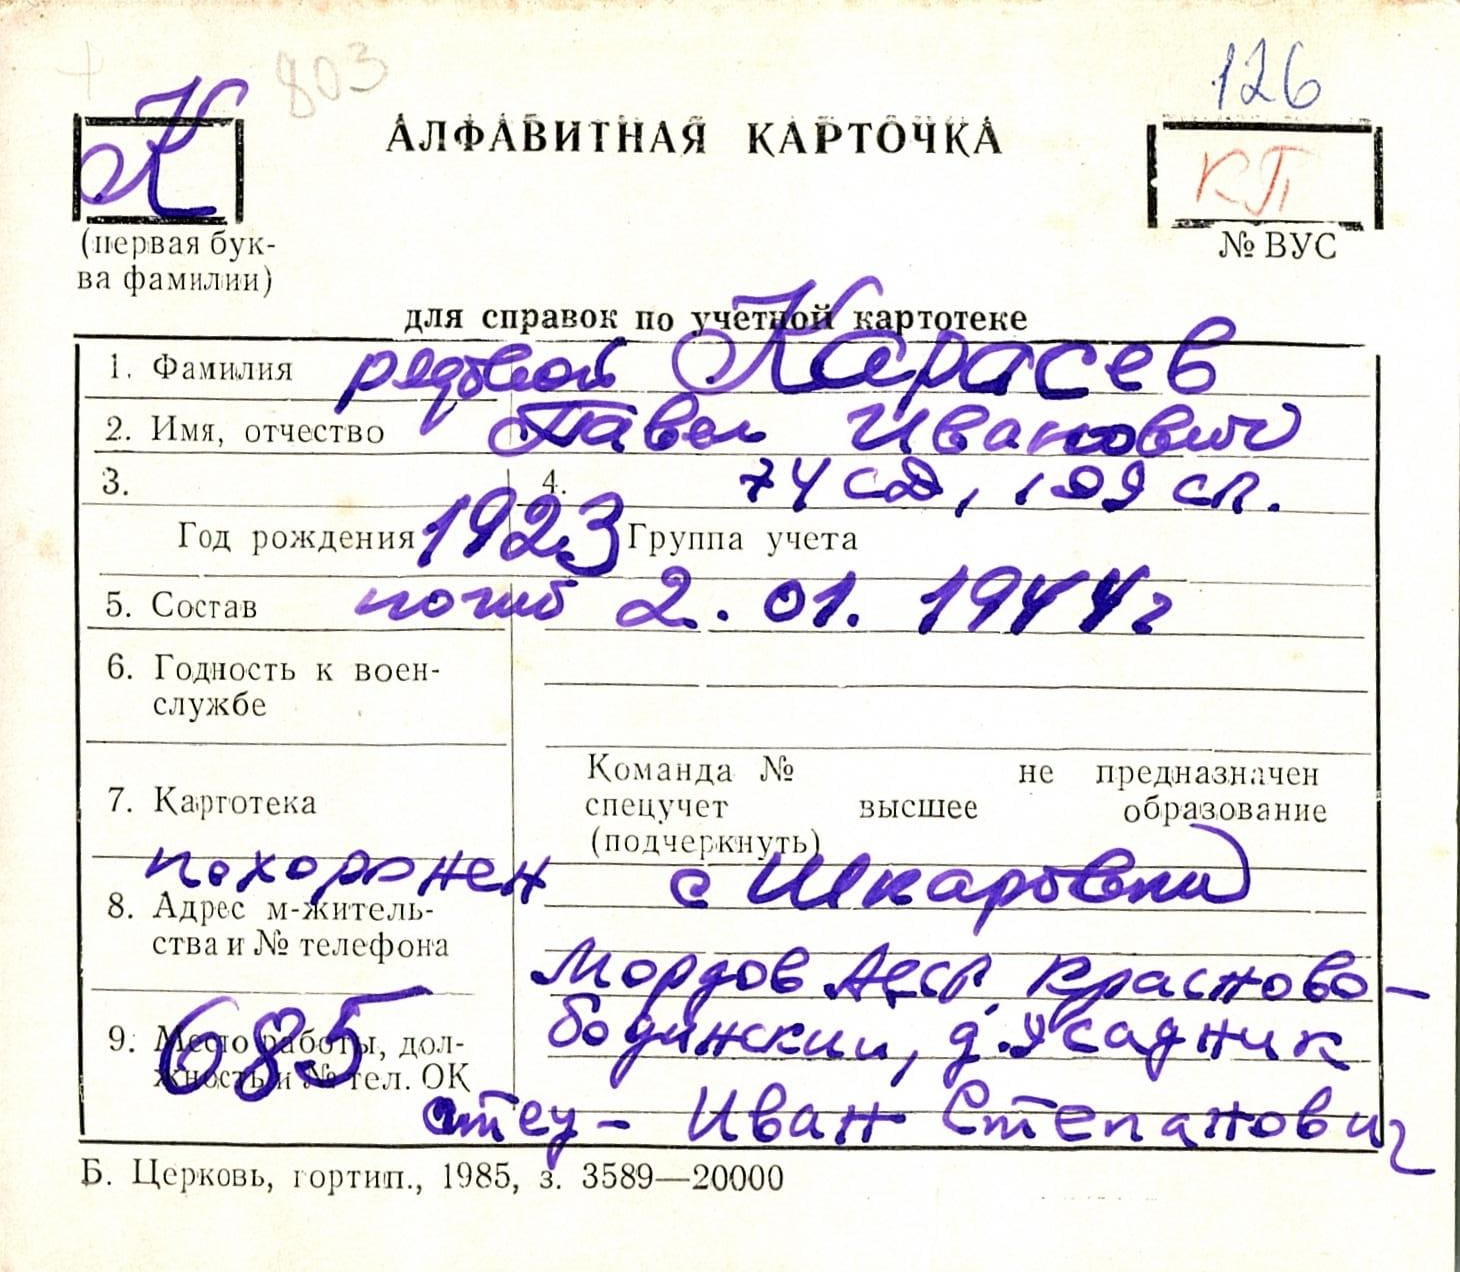 803
126
К
АЛФАВИТНАЯ КАРТОЧКА
КП
(первая бук-
ва фамилии)
№ ВУС
для справок по учетной картотеке
1. Фамилия рядовой Карасев
2. Имя, отчество Павел Иванович
3. 4. 74 сд, 109 сп.
Год рождения 1923 Группа учета
5. Состав погиб 2. 01. 1944г
6. Годность к воен-
службе
Команда № не предназначен
7. Картотека спецучет высшее образование
(подчеркнуть)
похоронен с Шкаровки
8. Адрес м-житель-
ства и № телефона
Мордов АССР, Красново-
685
9. Место работы, дол- бодинский, д.
жность и № тел. ОК
отец - Иван Степанович
Б. Церковь, гортип., 1985, з. 3589—20000